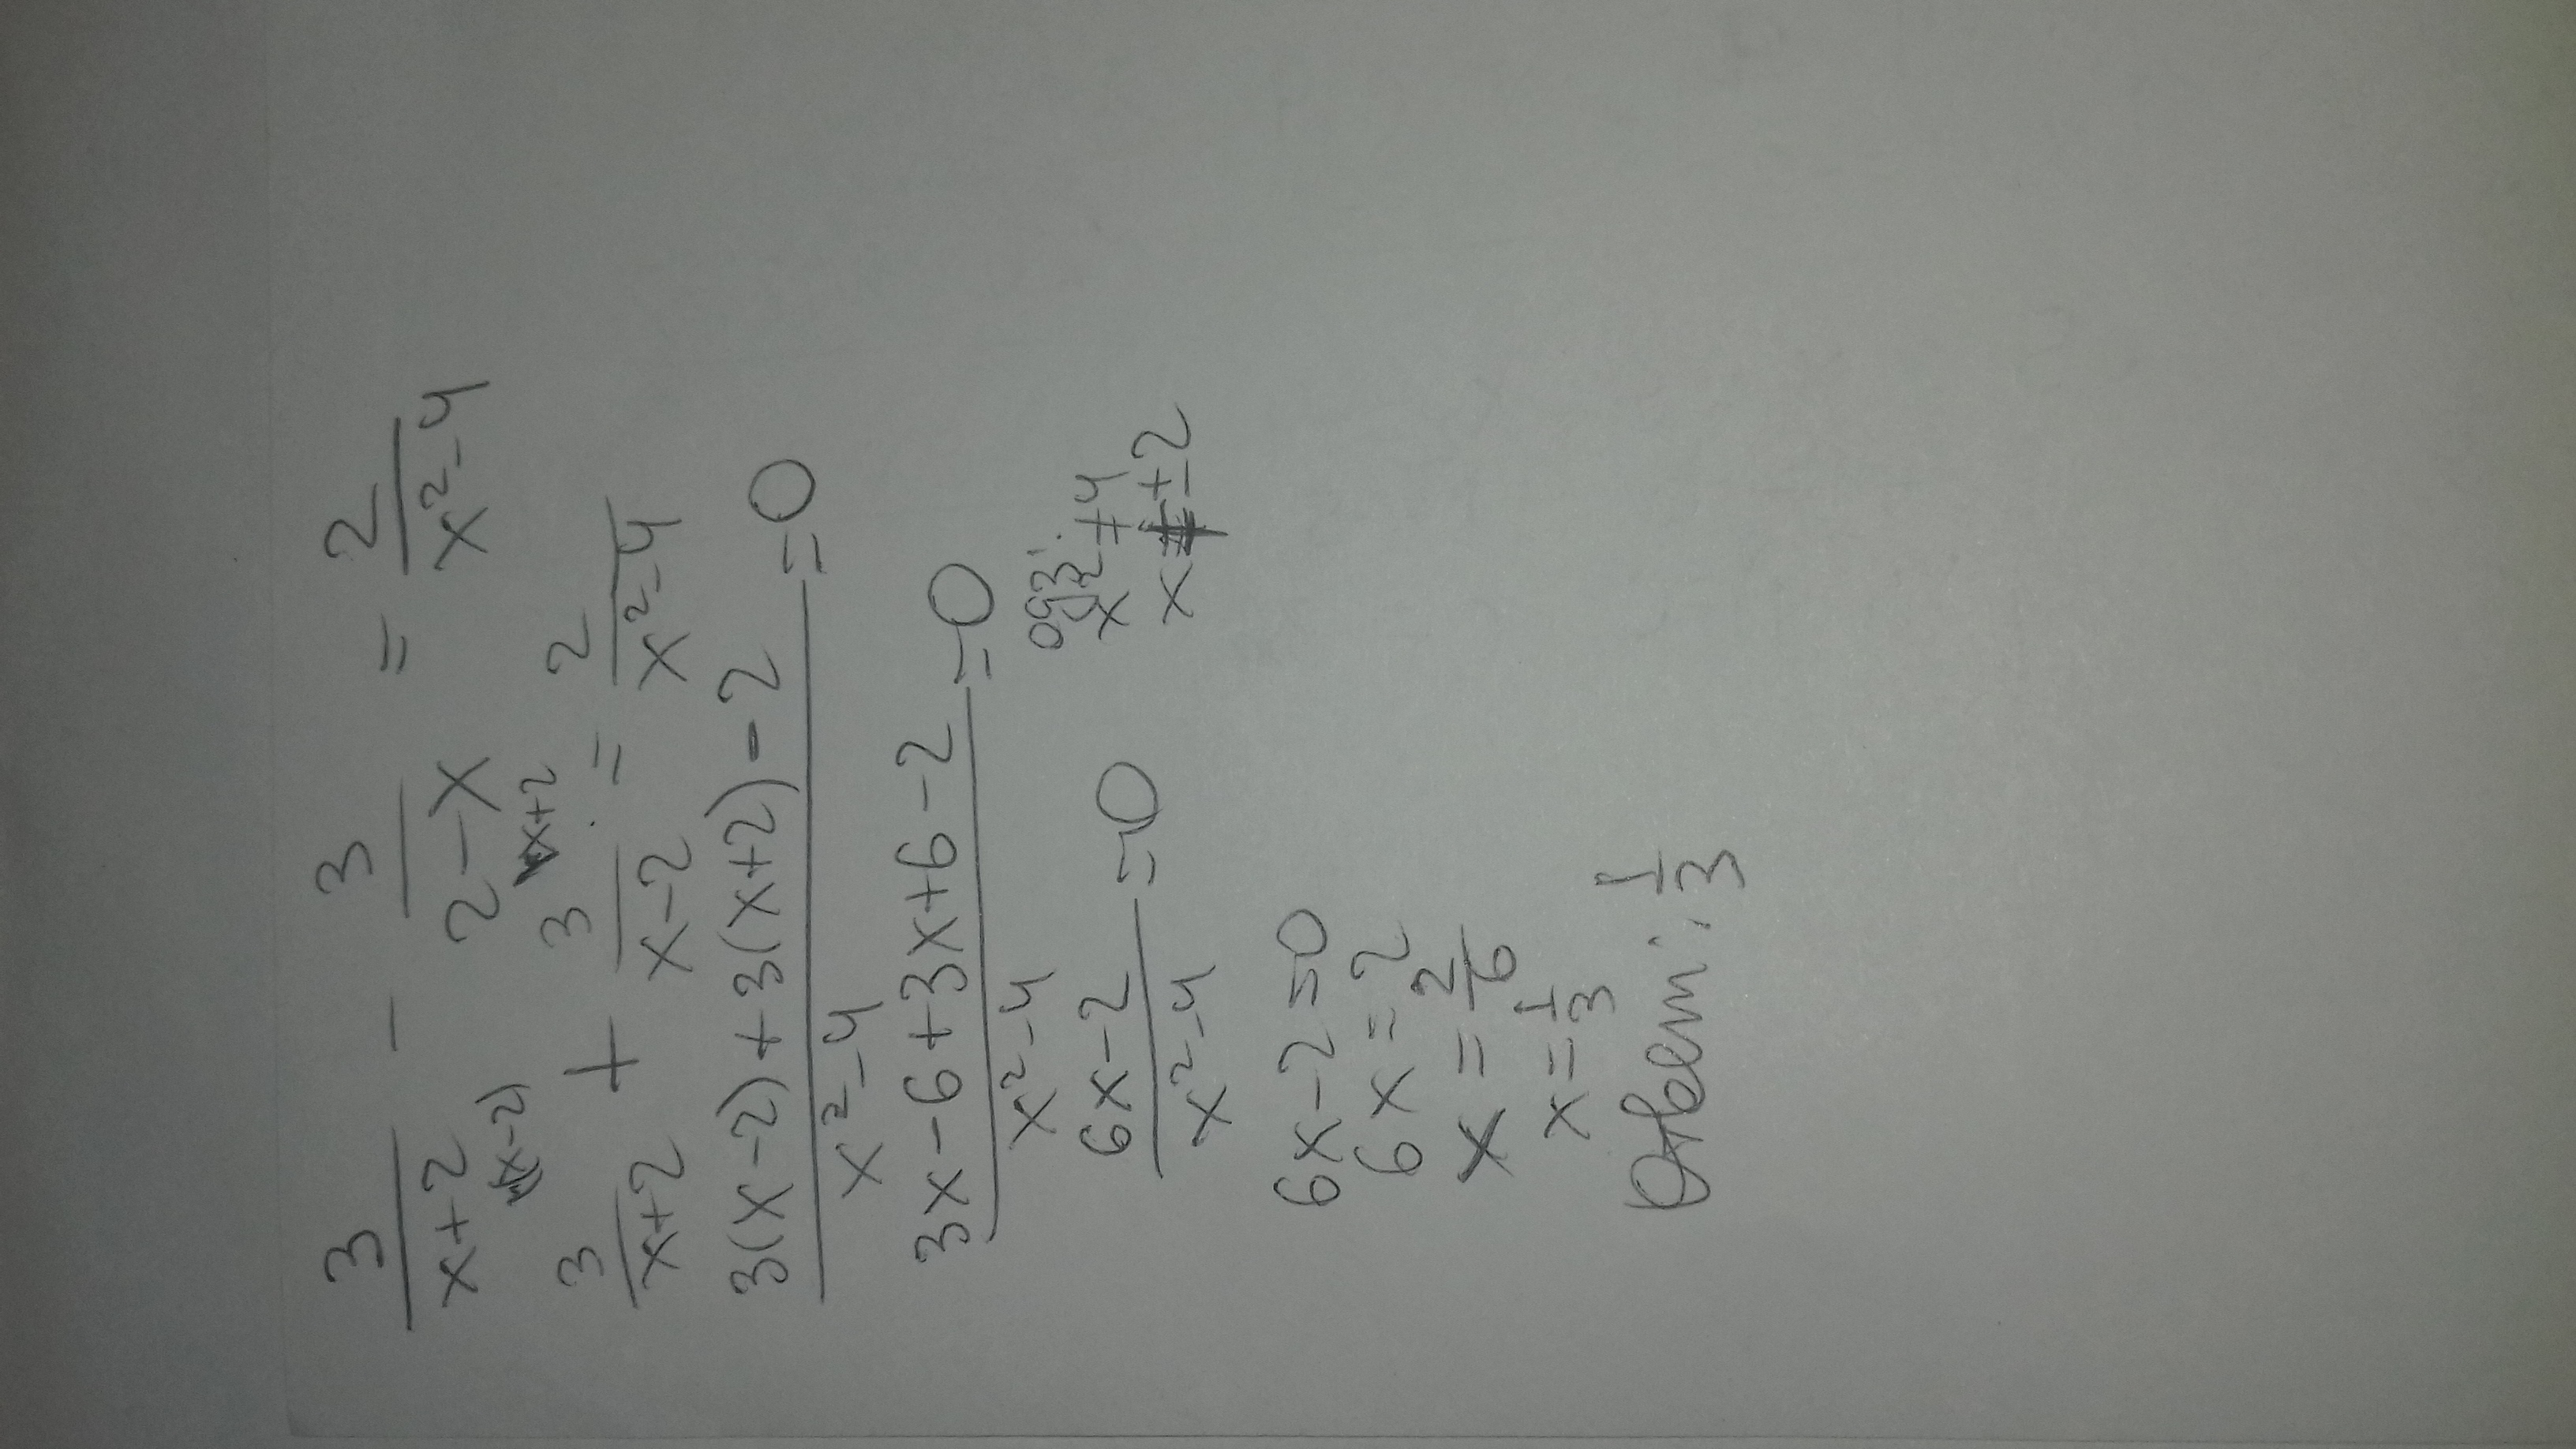 3/(x+2) - 3/(2-x) = 2/(x²-4)
(x-2) x+2
3/(x+2) + 3/(x-2) = 2/(x²-4)
(3(x-2)+3(x+2)-2)/(x²-4) = 0
(3x-6+3x+6-2)/(x²-4) = 0
(6x-2)/(x²-4) = 0
ОДЗ:
x²≠4
x≠±2
6x-2=0
6x=2
x=2/6
x=1/3
Ответ: 1/3